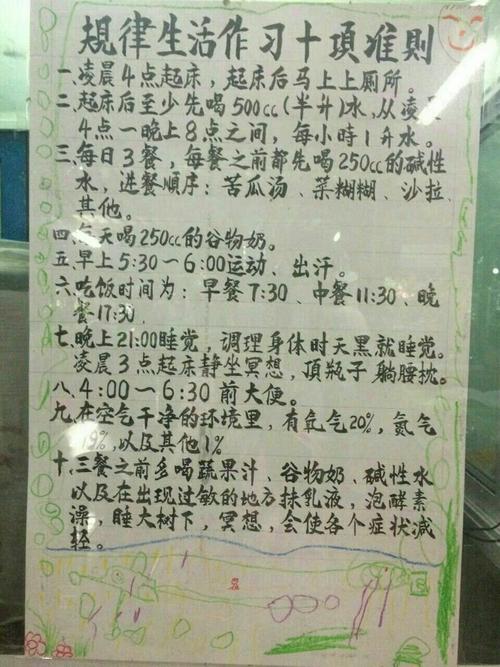 规律生活作习十項准則
一.凌晨4点起床，起床后马上上厕所。
二.起床后至少先喝500cc(半升)水,从凌晨
4点一晚上8点之间，每小時1升水。
三.每日3餐，每餐之前都先喝250cc的碱性
水，进餐順序：苦瓜汤、菜糊糊、沙拉、
其他。
四.每天喝250cc的谷物奶。
五.早上5:30～6:00运动、出汗。
六.吃饭时间为：早餐7:30、中餐11:30、晚
餐17:30.
七.晚上21:00睡觉，调理身体时天黑就睡觉。
凌晨3点起床静坐冥想，頂瓶子躺腰枕。
八.4:00～6:30前大便。
九.在空气干净的环境里，有氧气20%，氮气
79%,以及其他1%
十.三餐之前多喝蔬果汁、谷物奶、碱性水
以及在出现过敏的地方抹乳液，泡酵素
澡，睡大树下，冥想，会使各个症状减
轻。